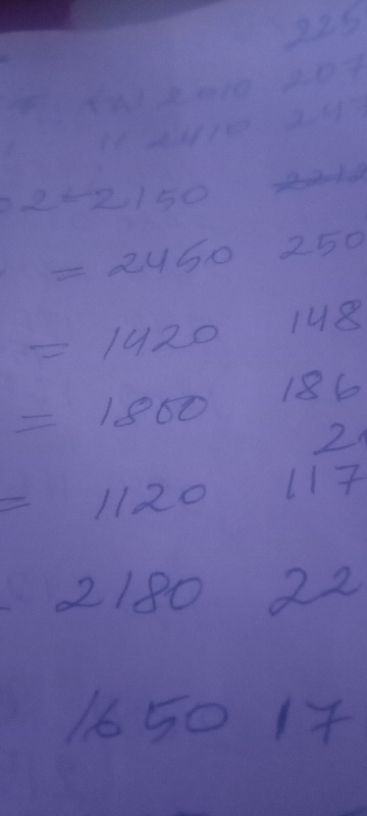 225
2010 207
11 2410 247
02=2150
= 2450 250
= 1420 148
= 1800 186
2
= 1120 117
2180 22
1650 17